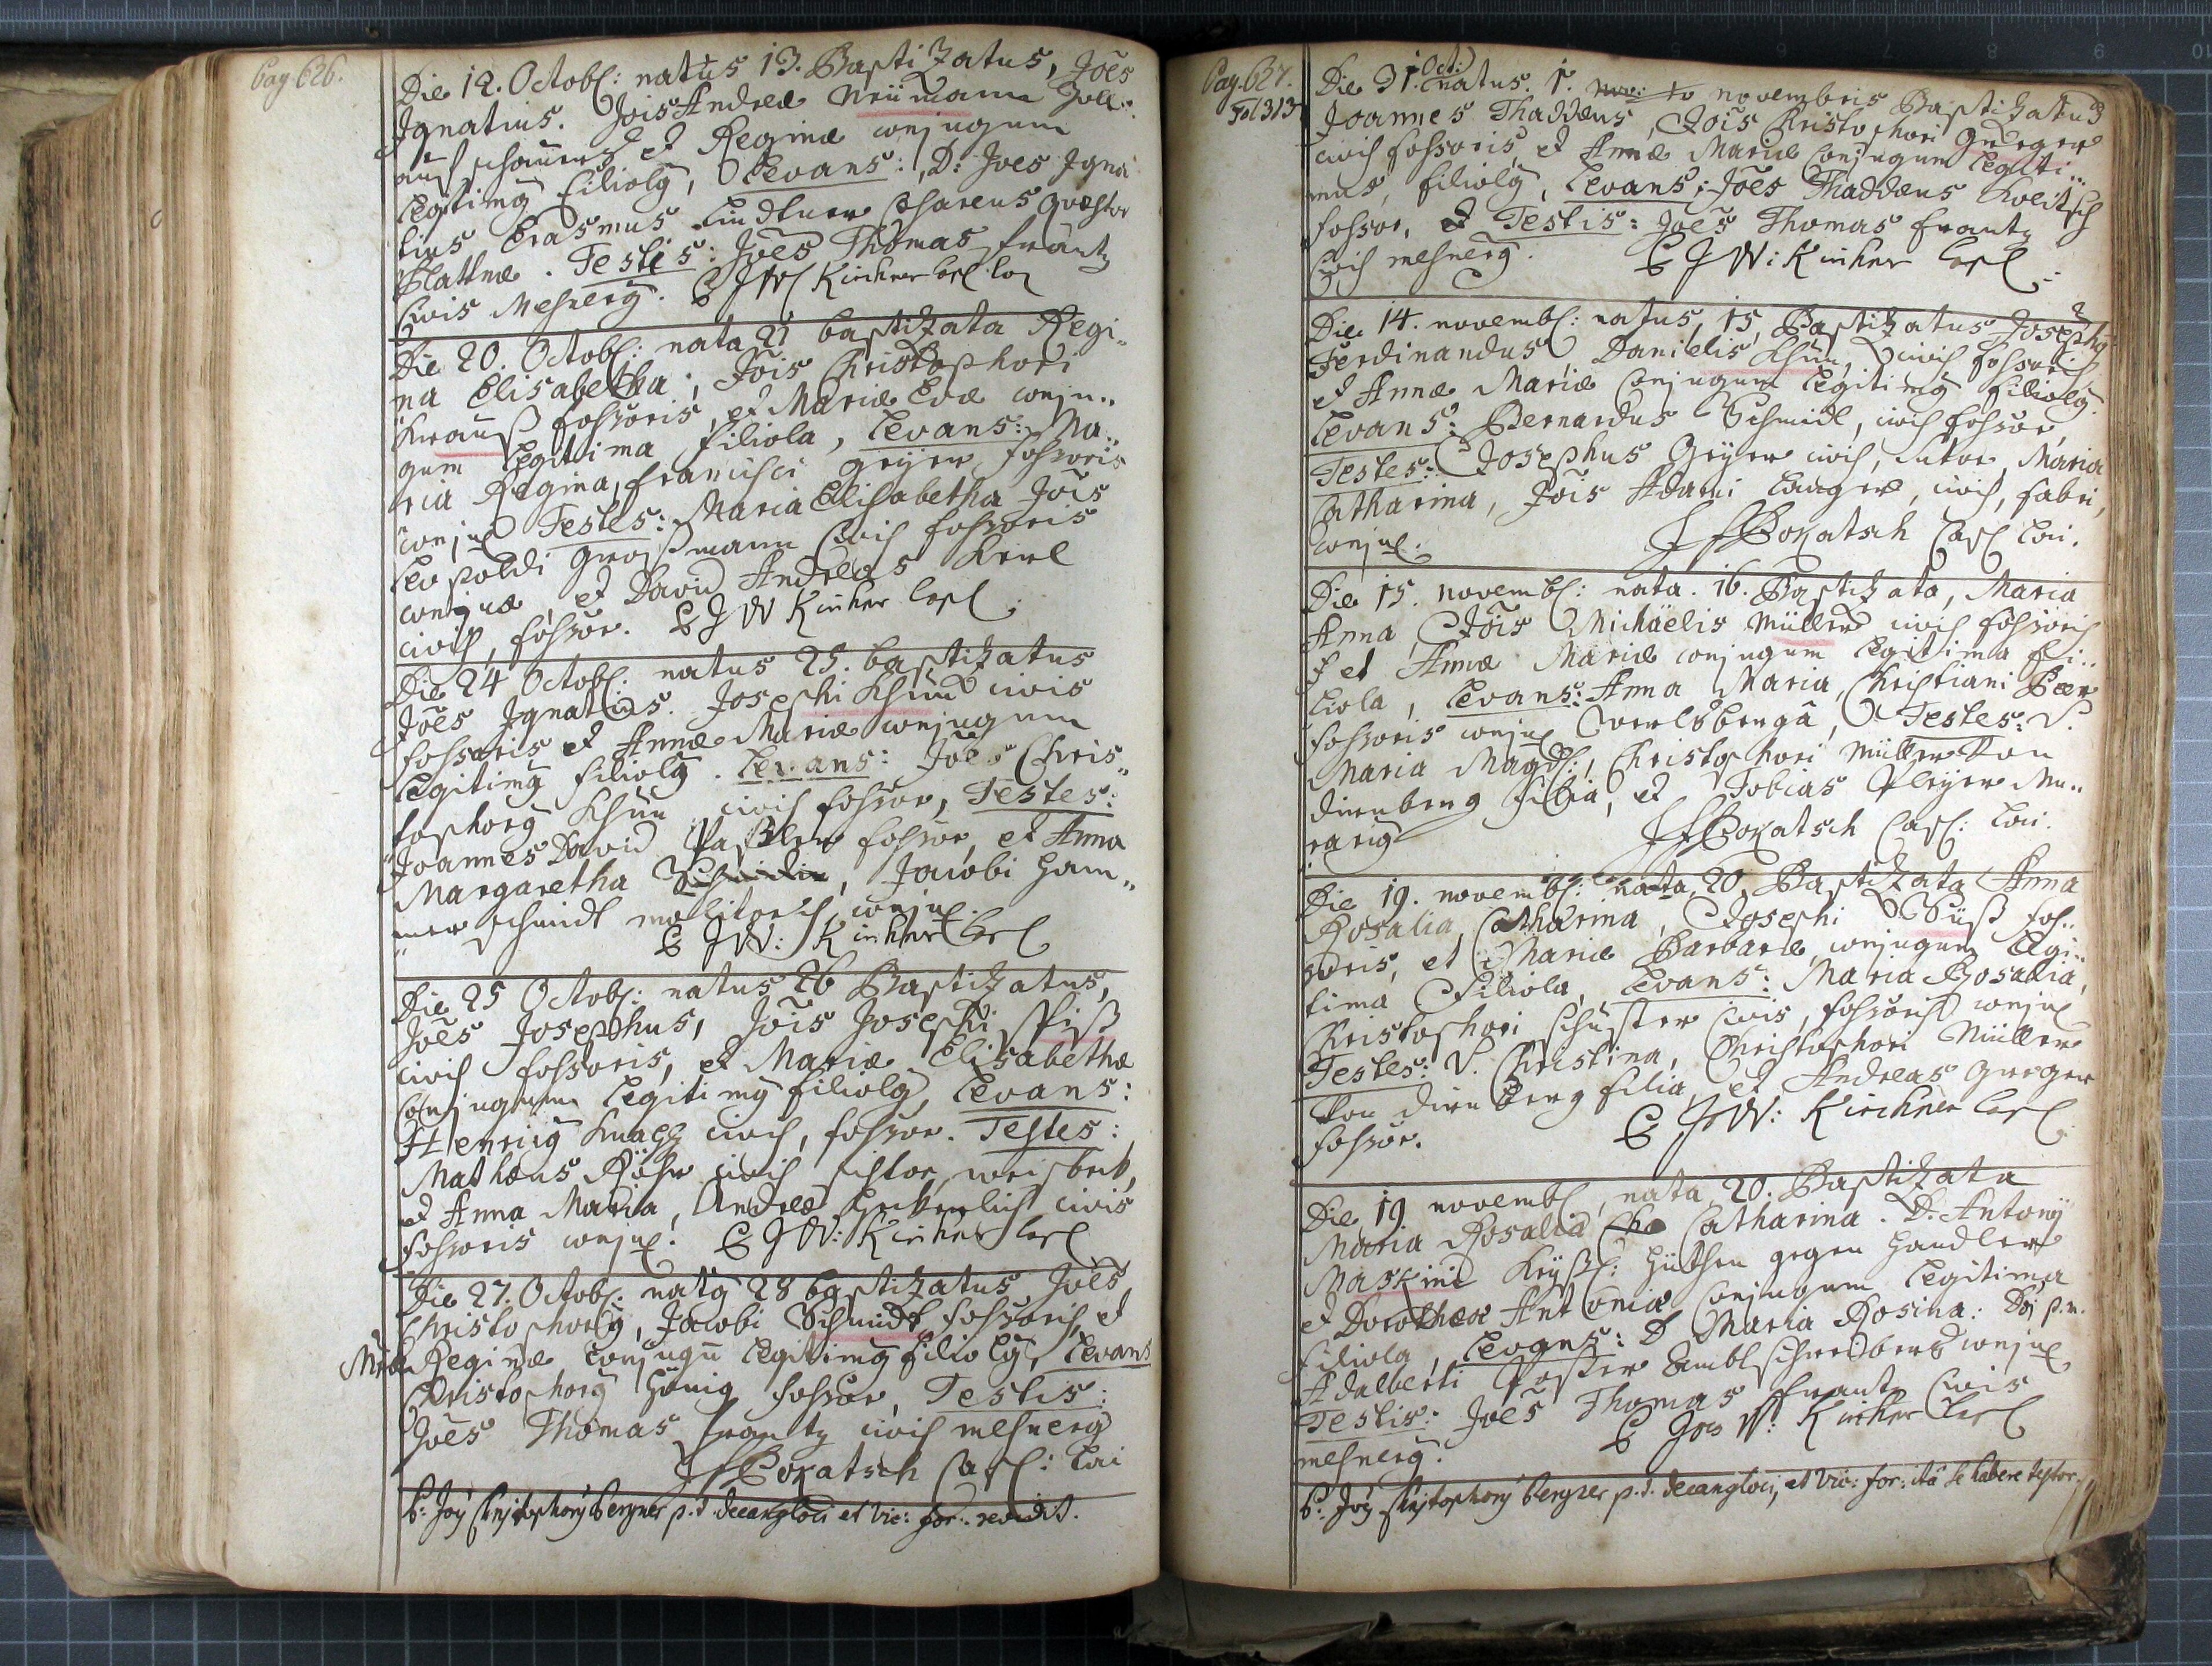 Pag. 626.
Die 12. Octob: natus 13. Baptizatus, Joes
Ignatius. Jois Andreæ Neümann Zoll:
auffschauers et Reginæ conjugum
legitimg filiolg, Levans: D: Joes Igna
tius Erasmus Lindtner Cæsareus Quæstor
Plattnæ. Testis: Joes Thomas frantz
Civis Mesnerg. P J W Kirchner Capl. loci
Die 20. Octob: nata 21 baptizata Regi„
na Elisabetha, Jois Christophori
Krauß fossoris, et Mariæ Evæ conju„
gum legitima filiola, Levans: Ma„
ria Regina, francisci geÿer fossoris
conjux Testes: Maria Elisabetha Jois
Leopoldi großmann Civis fossoris
conjux, et David Andreas
civis, fossor. P J W Kirchner Capl:
Die 24 Octob: natus 25. baptizatus
Joes Ignatius. Josephi Khün civis
fossoris et Annæ Mariæ conjugum
legitimg filiolg. Levans: Joes Chris„
tophorg Khün civis fossor, Testes:
Joannes David fossor, et Anna
Margaretha, Jacobi Ham„
mer schmidt molitoris, conjux.
P J W: Kirchner Capl
Die 25 Octob: natus 26 Baptizatus,
Joes Josephus, Jois Josephi
civis fossoris, et Mariæ Elisabethæ
Conjugum legitimg filiolg, Levans:
Henricg civis, fossor. Testes:
Mathæus civis pistor,
et Anna Maria, Andreæ civis
fossoris conjux. P J W: Kirchner Capl
Die 27. Octob: natg 28 baptizatus, Joes
Christophorg, Jacobi Schmidt fossoris, et
Mariæ Reginæ Conjugu legitimg filiolg, Levans
Christophorg Hönig fossor, Testis:
Joes Thomas frantz civis mesnerg
JfPokatsch Capl: Loci
P: Joÿ Christophorg Bergner p.t. decangloci et Vic: for: revidit.
Pag. 627.
Fol 313
Die 31. Oct: natus. 1. novembris Baptizatus
Joannes Thaddæus, Jois Christophori
civis fossoris, et Annæ Mariæ Conjugum legiti„
mus, filiolg, Levans: Joes Thaddæus
fossor, et Testis: Joes Thomas frantz
Civis mesnerg. P J W: Kirchner Capl
Die 14. novemb: natus, 15, Baptizatus Josephg
Ferdinandus, Danielis Khün, civis fossoris
et Annæ Mariæ Conjugum legitimg filiolg.
Levans: Bernardus Schmidt, civis fossor,
Testes: Josephus Geÿer civis, sutor, Maria
Catharina, Jois Adami Langer, civis, fabri,
conjux. JfPokatsch Capl Loci.
Die 15. novemb: nata. 16. Baptizata, Maria
Anna, Jois Michäelis Müller civis fossoris
et Annæ Mariæ conjugum legitima fi„
liola, Levans: Anna Maria, Christiani Beer
fossoris conjux, Testes: V.
Maria Magd:, Christophori Müller von
dirnberg filia, et Tobias Pleÿer Mu„
rarig JfPokatsch Capl: Loci.
Die 19. novemb: nata, 20, Baptizata Anna
Rosalia, Catharina, Josephi Süß fos„
soris, et Mariæ Barbaræ, conjugum legi„
tima filiola, Levans: Maria Rosalia,
Christophori Schuster Civis, fossoris conjux
Testes: V. Christina, Christophori Müller
von dirnberg filia, et Andreas
fossor. P J W: Kirchner Capl
Die 19 novemb, nata, 20. Baptizata
Maria Rosalia Catharina. D: Antonÿ
Maskini gegen Handler
et Dorotheæ Antoniæ Conjugum legitima
filiola, Levans: D Maria Rosina:
Adalberti Ambt schreibers conjux
Testis: Joes Thomas frantz Civis
mesnerg. P Joes W: Kirchner Capl
P: Joÿ Christophorg Bergner p.t. decangloci, et Vic: for: ita se habere testor.